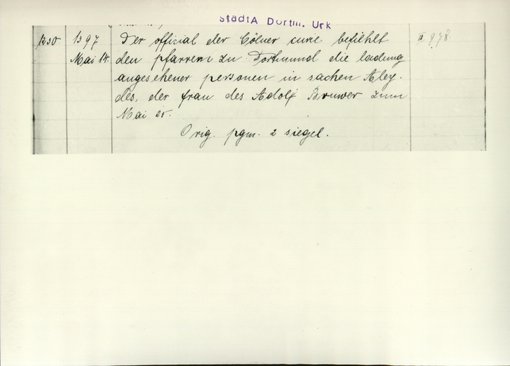 StadtA Dortm. Urk
1397 Der official der Cölner curie befiehlt # 978
Mai den pfarrern zu Dortmund die ladung
angesehener personen in sachen Aley-
des, der frau des Adolf Bruwer zum
Mai
Orig. pgm. 2 siegel.